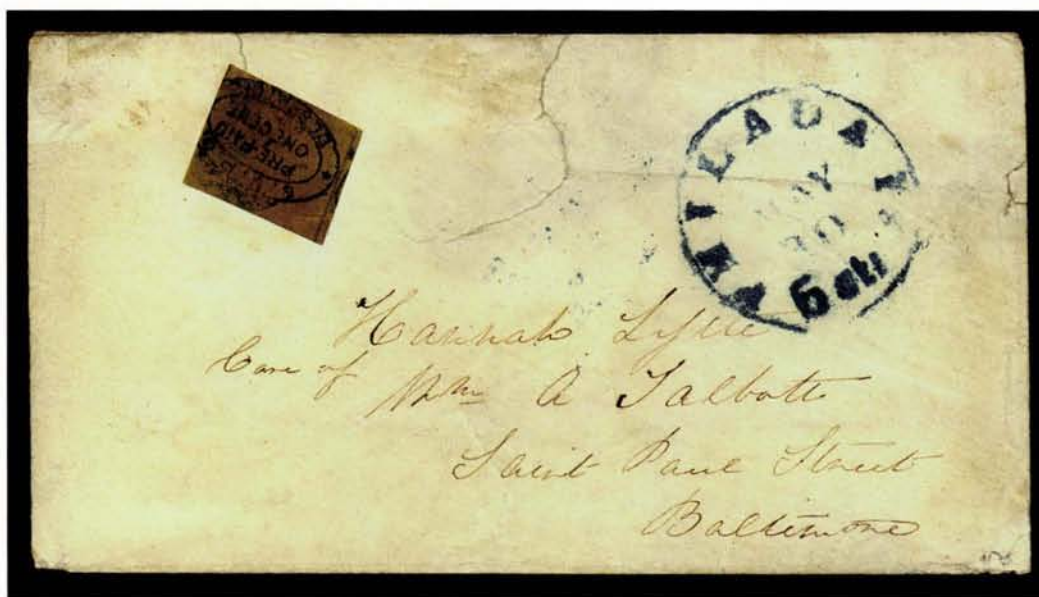 PRE-PAID
ONE CENT
PHILADA
MAY
10
5 cts
Hannah Lytle
Care of
Wm A Talbott
Saint Paul Street
Baltimore